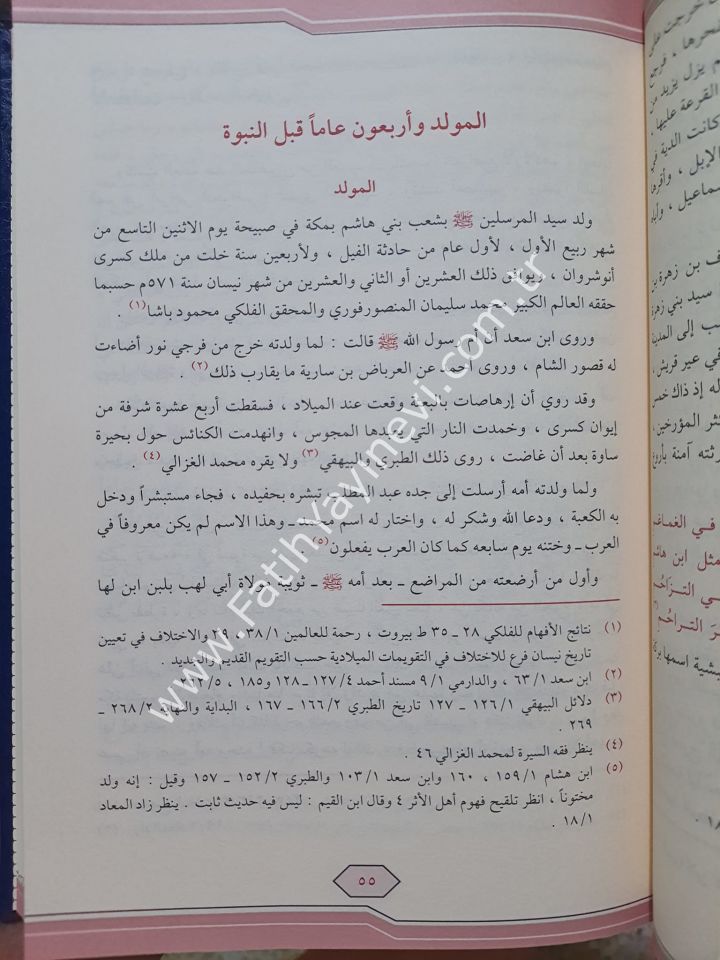 المولد وأربعون عاماً قبل النبوة
المولد
ولد سيد المرسلين ﷺ بشعب بني هاشم بمكة في صبيحة يوم الاثنين التاسع من
شهر ربيع الأول ، لأول عام من حادثة الفيل ، ولأربعين سنة خلت من ملك كسرى
أنوشروان ، ويوافق ذلك العشرين أو الثاني والعشرين من شهر نيسان سنة ٥٧١م حسبما
حققه العالم الكبير محمد سليمان المنصورفوري والمحقق الفلكي محمود باشا(١) .
وروى ابن سعد أن أم رسول الله ﷺ قالت : لما ولدته خرج من فرجي نور أضاءت
له قصور الشام ، وروى أحمد عن العرباض بن سارية ما يقارب ذلك(٢) .
وقد روي أن إرهاصات بالبعثة وقعت عند الميلاد ، فسقطت أربع عشرة شرفة من
إيوان كسرى ، وخمدت النار التي يعبدها المجوس ، وانهدمت الكنائس حول بحيرة
ساوة بعد أن غاضت ، روى ذلك الطبري والبيهقي(٣) ولا يقره محمد الغزالي(٤) .
ولما ولدته أمه أرسلت إلى جده عبد المطلب تبشره بحفيده ، فجاء مستبشراً ودخل
به الكعبة ، ودعا الله وشكر له ، واختار له اسم محمد ـ وهذا الاسم لم يكن معروفاً في
العرب ـ وختنه يوم سابعه كما كان العرب يفعلون(٥) .
وأول من أرضعته من المراضع ـ بعد أمه ﷺ ـ ثويبة مولاة أبي لهب بلبن ابن لها
(١) نتائج الأفهام للفلكي ٢٨ ـ ٣٥ ط بيروت ، رحمة للعالمين ٣٨/١ ، ٣٩ والاختلاف في تعيين
تاريخ نيسان فرع للاختلاف في التقويمات الميلادية حسب التقويم القديم والجديد .
(٢) ابن سعد ٦٣/١ ، والدارمي ٩/١ مسند أحمد ١٢٧/٤ ـ ١٢٨ و١٨٥ ، ٢٦٢/٥ .
(٣) دلائل البيهقي ١٢٦/١ ـ ١٢٧ تاريخ الطبري ١٦٦/٢ ـ ١٦٧ ، البداية والنهاية ٢٦٨/٢ ـ
٢٦٩ .
(٤) ينظر فقه السيرة لمحمد الغزالي ٤٦ .
(٥) ابن هشام ١٥٩/١ ، ١٦٠ وابن سعد ١٠٣/١ والطبري ١٥٢/٢ ـ ١٥٧ وقيل : إنه ولد
مختوناً ، انظر تلقيح فهوم أهل الأثر ٤ وقال ابن القيم : ليس فيه حديث ثابت . ينظر زاد المعاد
١٨/١ .
٥٥
www.FatihYayinevi.com.tr